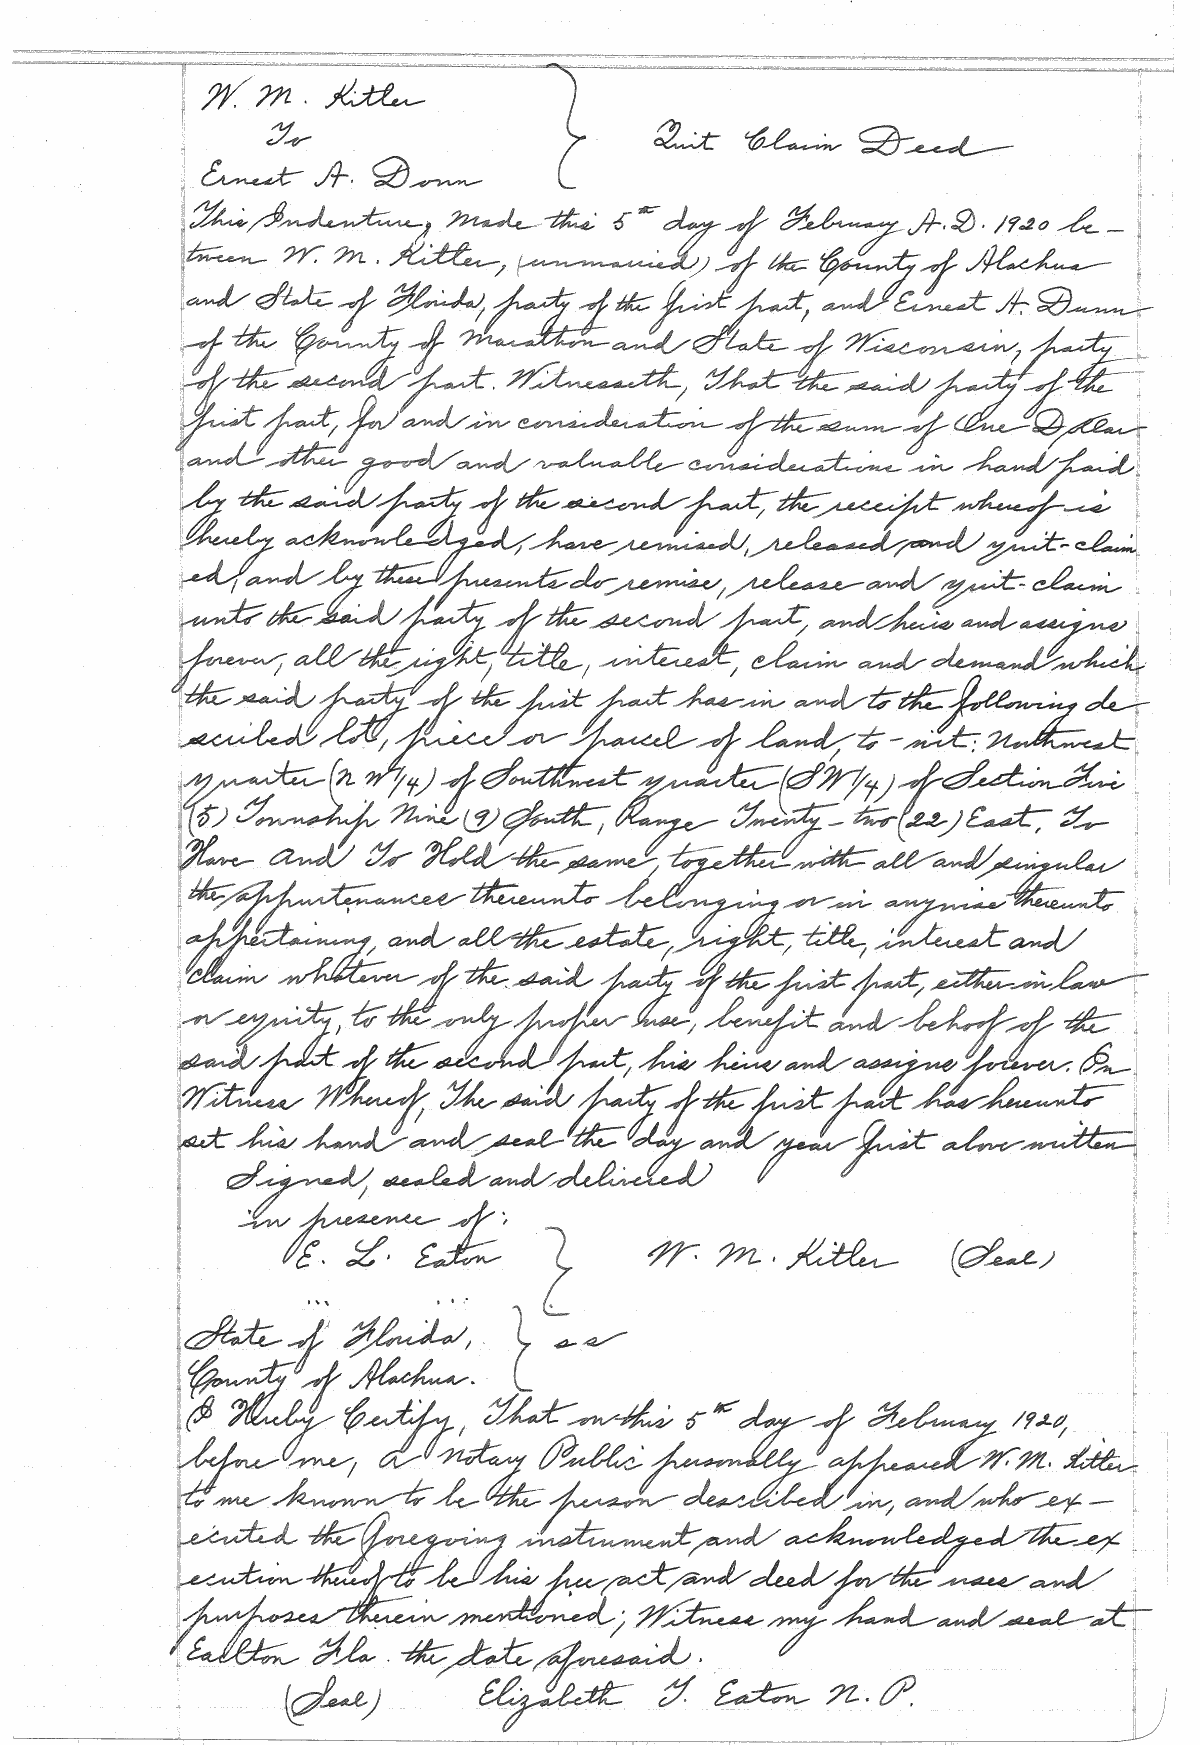 W. M. Kitler
To
Quit Claim Deed
Ernest A. Dunn
This Indenture, Made this 5th day of February A.D. 1920 be-
tween W. M. Kitler, (unmarried) of the County of Alachua
and State of Florida, party of the first part, and Ernest A. Dunn
of the County of Marathon and State of Wisconsin, party
of the second part. Witnesseth, That the said party of the
first part, for and in consideration of the sum of One Dollar
and other good and valuable considerations in hand paid
by the said party of the second part, the receipt whereof is
hereby acknowledged, have remised, released and quit-claim
ed, and by these presents do remise, release and quit-claim
unto the said party of the second part, and heirs and assigns
forever, all the right, title, interest, claim and demand which
the said party of the first part has in and to the following de
scribed lot, piece or parcel of land, to-wit: Northwest
quarter (NW1/4) of Southwest quarter (SW1/4) of Section Five
(5) Township Nine (9) South, Range Twenty-two (22) East, To
Have And To Hold the same, together with all and singular
the appurtenances thereunto belonging or in anywise thereunto
appertaining, and all the estate, right, title, interest and
claim whatever of the said party of the first part, either in law
or equity, to the only proper use, benefit and behoof of the
said part of the second part, his heirs and assigns forever. In
Witness Whereof, The said party of the first part has hereunto
set his hand and seal the day and year first above written
Signed, sealed and delivered
in presence of:
E. L. Eaton W. M. Kitler (Seal)
... ...
State of Florida, ss
County of Alachua.
I Hereby Certify, That on this 5th day of February 1920,
before me, a Notary Public personally appeared W. M. Kitler
to me known to be the person described in, and who ex-
ecuted the foregoing instrument and acknowledged the ex
ecution thereof to be his free act and deed for the uses and
purposes therein mentioned; Witness my hand and seal at
Earlton Fla. the date aforesaid.
(Seal) Elizabeth T. Eaton N. P.